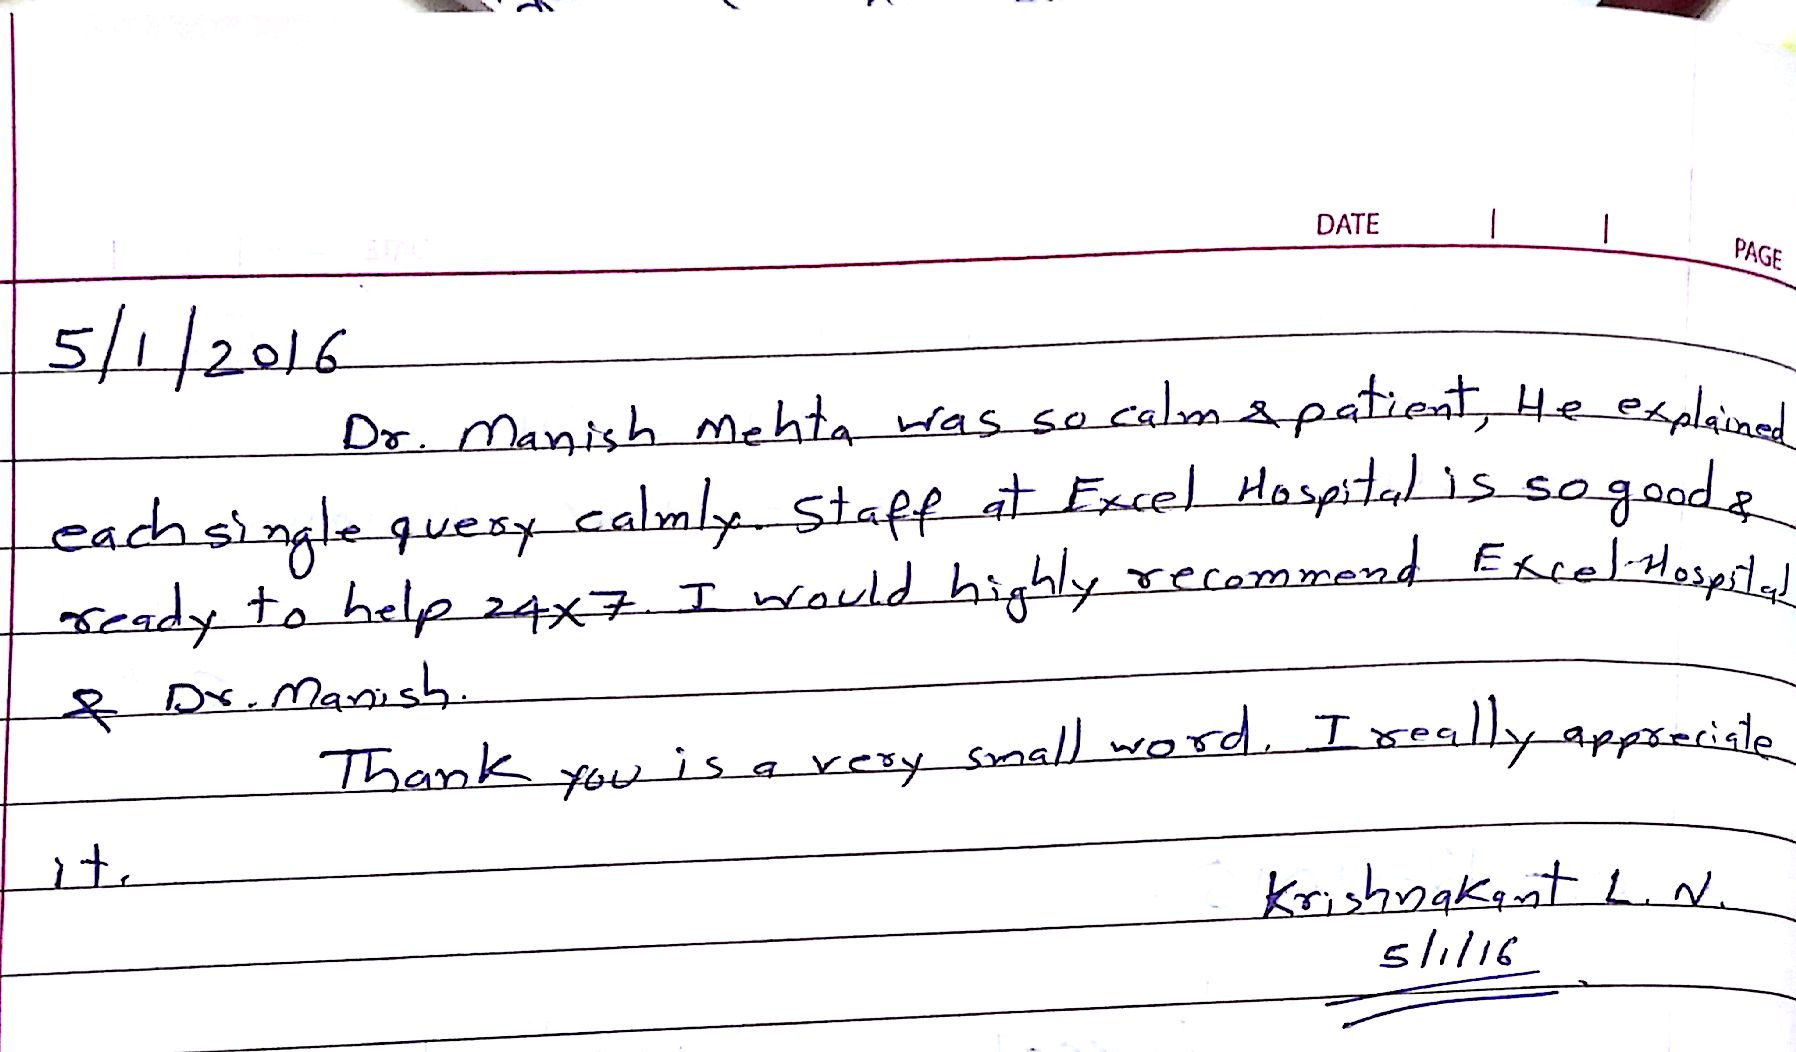 DATE | | PAGE
5/1/2016
Dr. Manish Mehta was so calm & patient, He explained
each single query calmly. Staff at Excel Hospital is so good &
ready to help 24x7. I would highly recommend Excel Hospital
& Dr. Manish.
Thank you is a very small word. I really appreciate
it.
Krishnakant L. N.
5/1/16